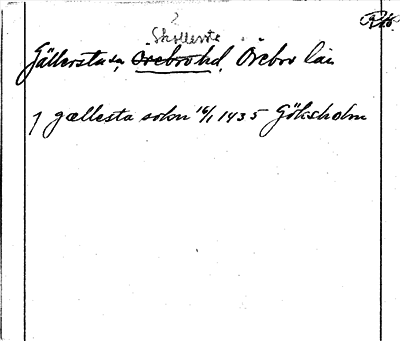 ?
Skollersta
RA8.
Gällersta sn, Örebro hd, Örebro län
J gællesta sokn 16/1 1435 Göksholm